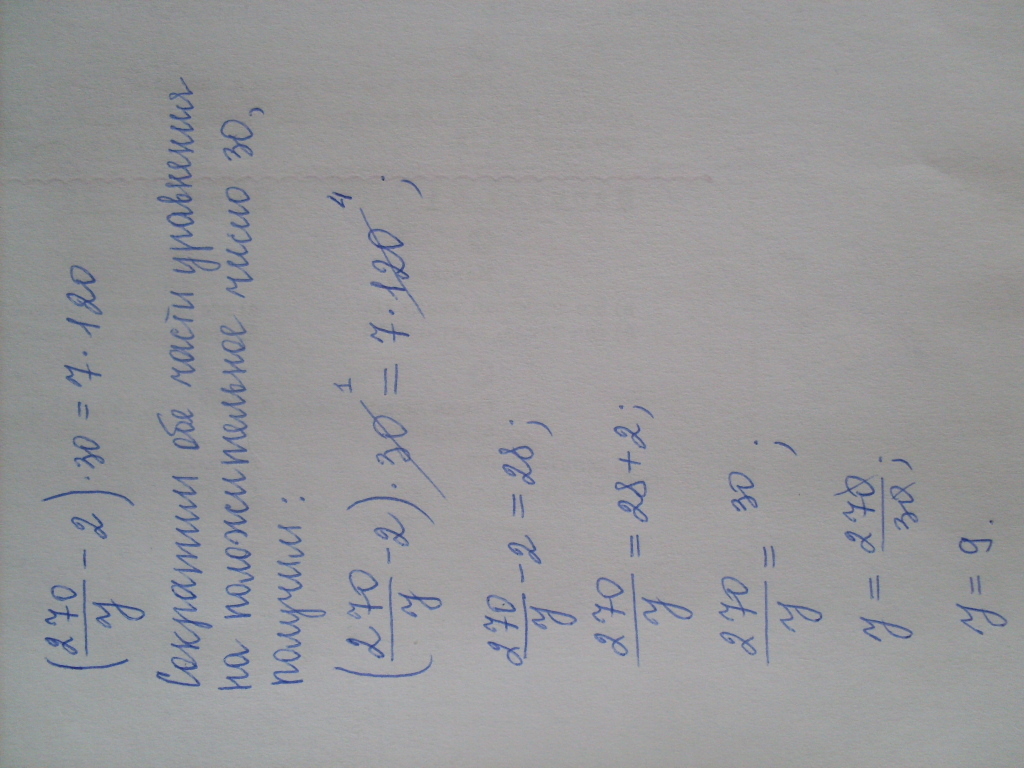 (270/y - 2) · 30 = 7 · 120
Сократим обе части уравнения
на положительное число 30,
получим:
(270/y - 2) · 30 1 = 7 · 120 4 ;
270/y - 2 = 28 ;
270/y = 28 + 2 ;
270/y = 30 ;
y = 270/30 ;
y = 9.